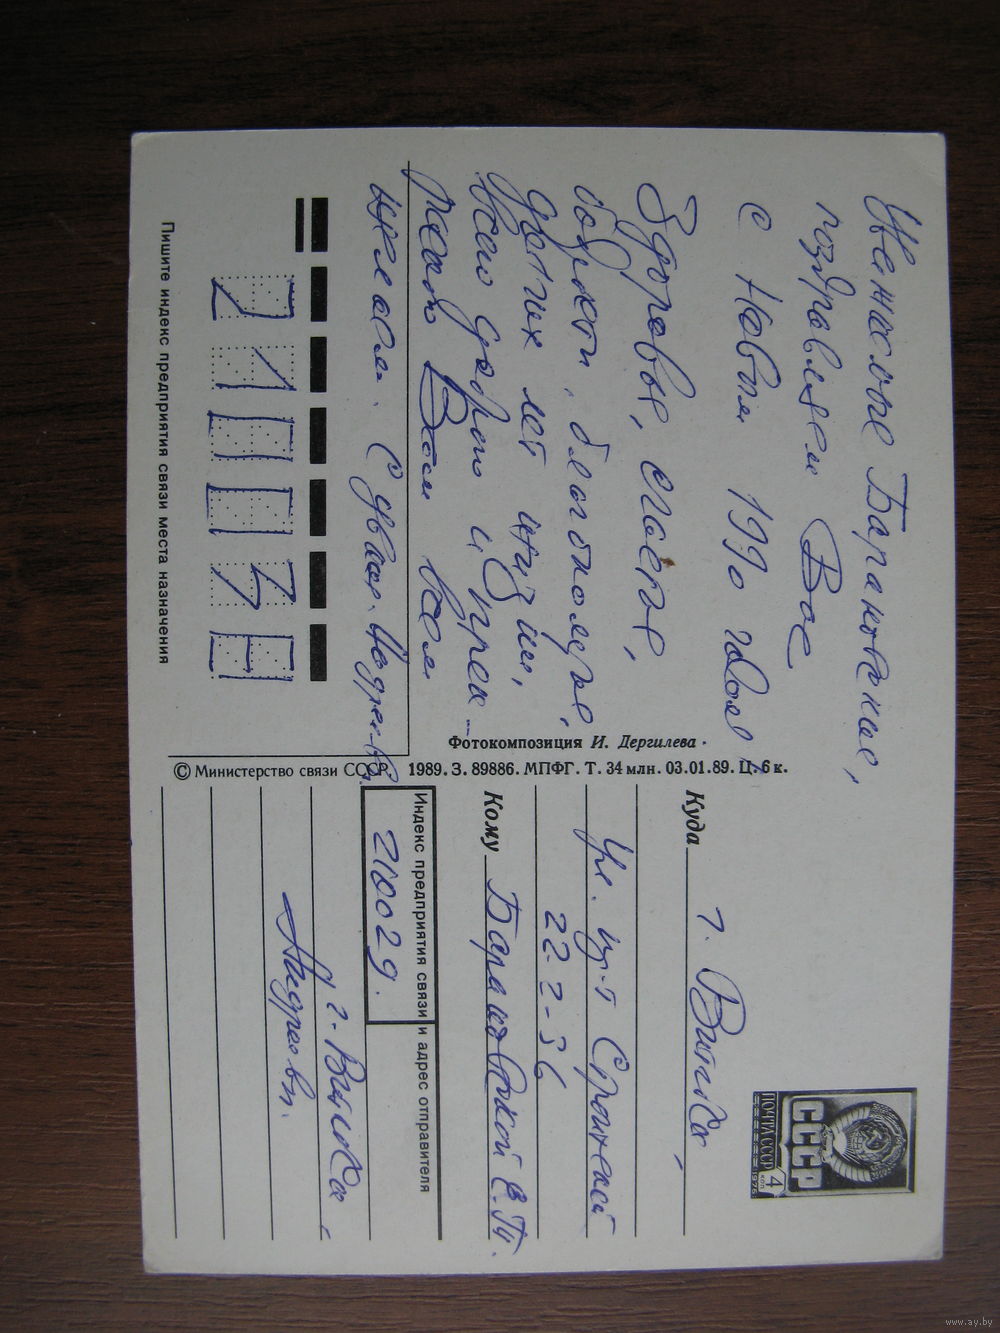 Уважаемые Барановские,
поздравляем Вас
с Новым 1990 годом!
Здоровья, счастья,
бодрости, благополучия,
долгих лет жизни,
всего доброго и прек-
расного Вам всем
желаем. С уваж.
Фотокомпозиция И. Дергилева
© Министерство связи СССР 1989. З. 89886. МПФГ. Т. 34 млн. 03.01.89. Ц. 6 к.
210029
Пишите индекс предприятия связи места назначения
СССР
ПОЧТА СССР 4 коп
1976
Куда г. Витебск,
22-2-36
Кому Барановской Е.П.
Индекс предприятия связи и адрес отправителя
210029.
г. Витебск,
www.ay.by